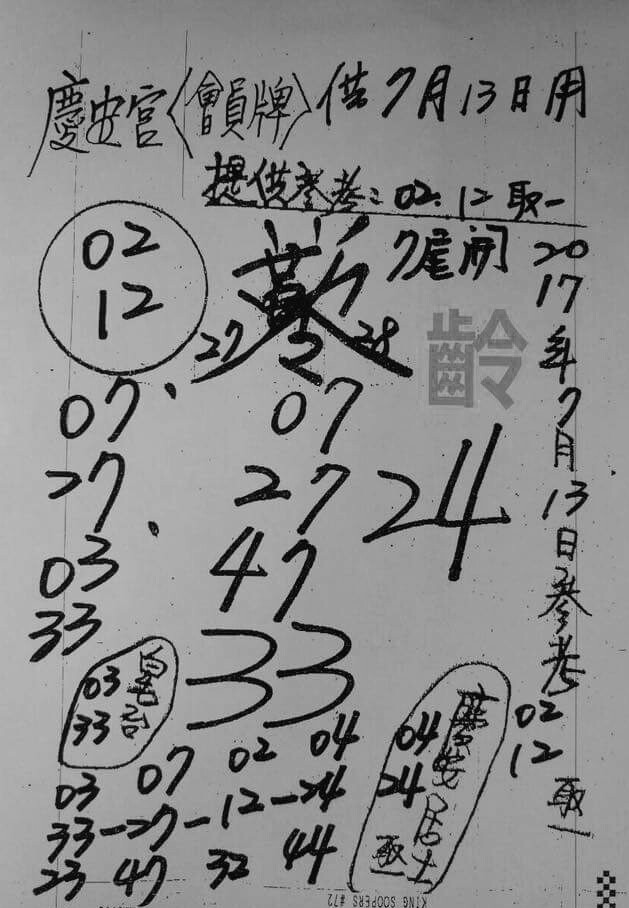 慶安宮〈會員牌〉供7月13日用
提供參考:02.12取一
7尾開
02
12
27 28
齡
07
27
03
33
07
27
47
33
24
2017年7月13日參考
02
12
取一
03
33
慶安居士
04
24
取一
03 07 02 04
33-27-12-24
23 47 32 44
KING SOOPERS #72